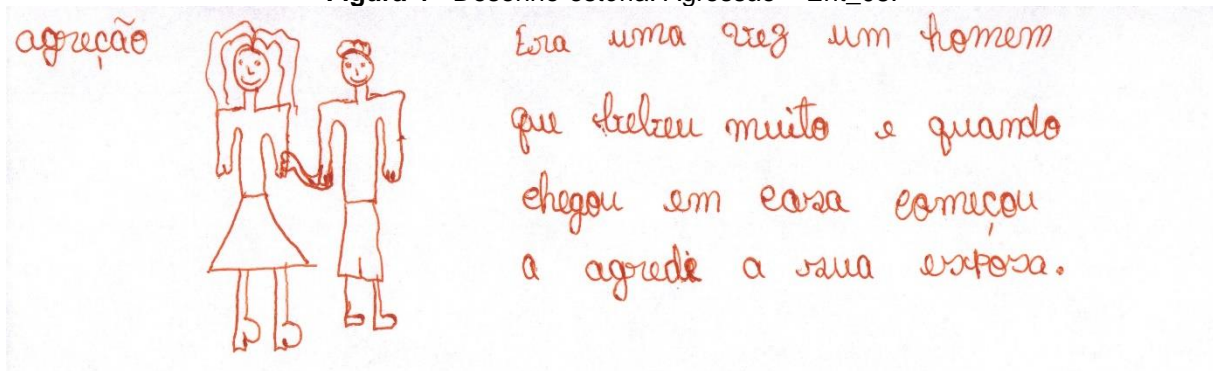 agreção
Era uma vez um homem
que bebeu muito e quando
chegou em casa começou
a agredi a sua exposa.